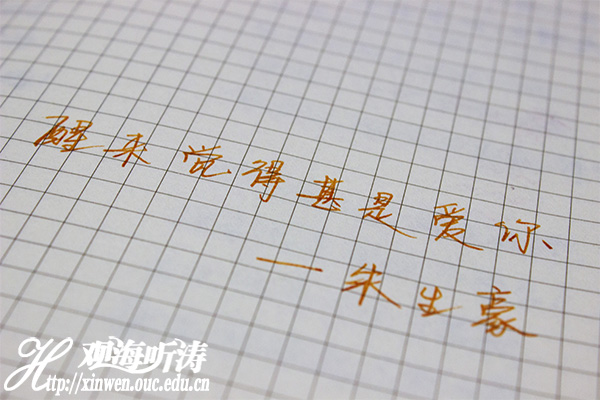 醒来觉得甚是爱你
—朱生豪
观海听涛
Http://xinwen.ouc.edu.cn